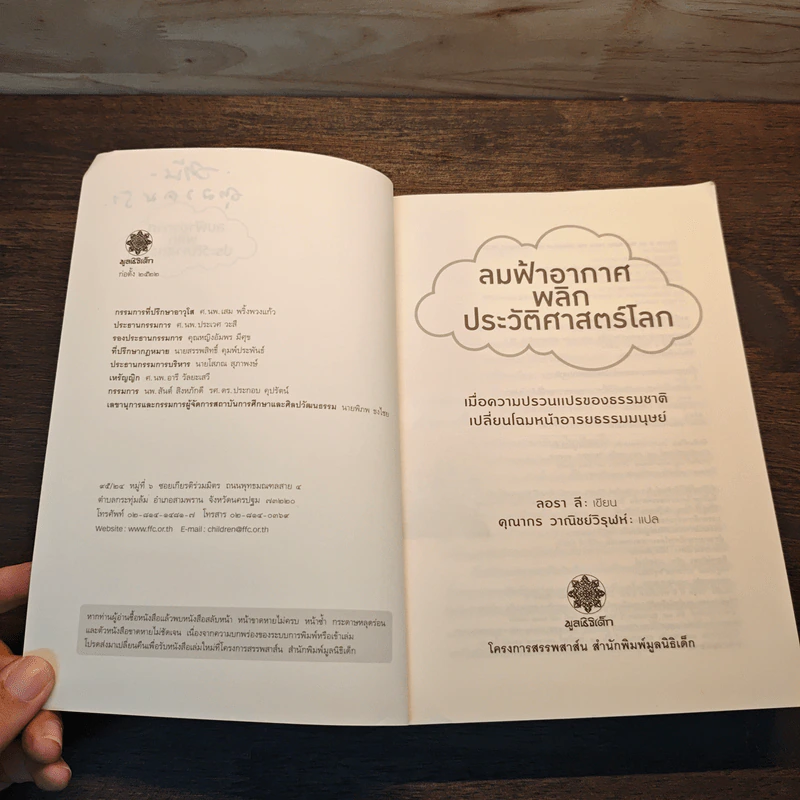 มูลนิธิเด็ก
ก่อตั้ง ๒๕๒๒
กรรมการที่ปรึกษาอาวุโส ศ.นพ.เสม พริ้งพวงแก้ว
ประธานกรรมการ ศ.นพ.ประเวศ วะสี
รองประธานกรรมการ คุณหญิงอัมพร มีศุข
ที่ปรึกษากฎหมาย นายสรรพสิทธิ์ คุมพ์ประพันธ์
ประธานกรรมการบริหาร นายโสภณ สุภาพงษ์
เหรัญญิก ศ.นพ.อารี วัลยะเสวี
กรรมการ นพ.สันต์ สิงหภักดี รศ.ดร.ประกอบ คุปรัตน์
เลขานุการและกรรมการผู้จัดการสถาบันการศึกษาและศิลปวัฒนธรรม นายพิภพ ธงไชย
๙๕/๒๔ หมู่ที่ ๖ ซอยเกียรติร่วมมิตร ถนนพุทธมณฑลสาย ๔
ตำบลกระทุ่มล้ม อำเภอสามพราน จังหวัดนครปฐม ๗๓๒๒๐
โทรศัพท์ ๐๒-๘๑๔-๑๔๘๑-๗ โทรสาร ๐๒-๘๑๔-๐๓๖๙
Website : www.ffc.or.th E-mail : children@ffc.or.th
หากท่านผู้อ่านซื้อหนังสือแล้วพบหนังสือสลับหน้า หน้าขาดหายไม่ครบ หน้าซ้ำ กระดาษหลุดร่อน
และตัวหนังสือขาดหายไม่ชัดเจน เนื่องจากความบกพร่องของระบบการพิมพ์หรือเข้าเล่ม
โปรดส่งมาเปลี่ยนคืนเพื่อรับหนังสือเล่มใหม่ที่โครงการสรรพสาส์น สำนักพิมพ์มูลนิธิเด็ก
ลมฟ้าอากาศ
พลิก
ประวัติศาสตร์โลก
เมื่อความปรวนแปรของธรรมชาติ
เปลี่ยนโฉมหน้าอารยธรรมมนุษย์
ลอรา ลี: เขียน
คุณากร วาณิชย์วิรุฬห์: แปล
มูลนิธิเด็ก
โครงการสรรพสาส์น สำนักพิมพ์มูลนิธิเด็ก